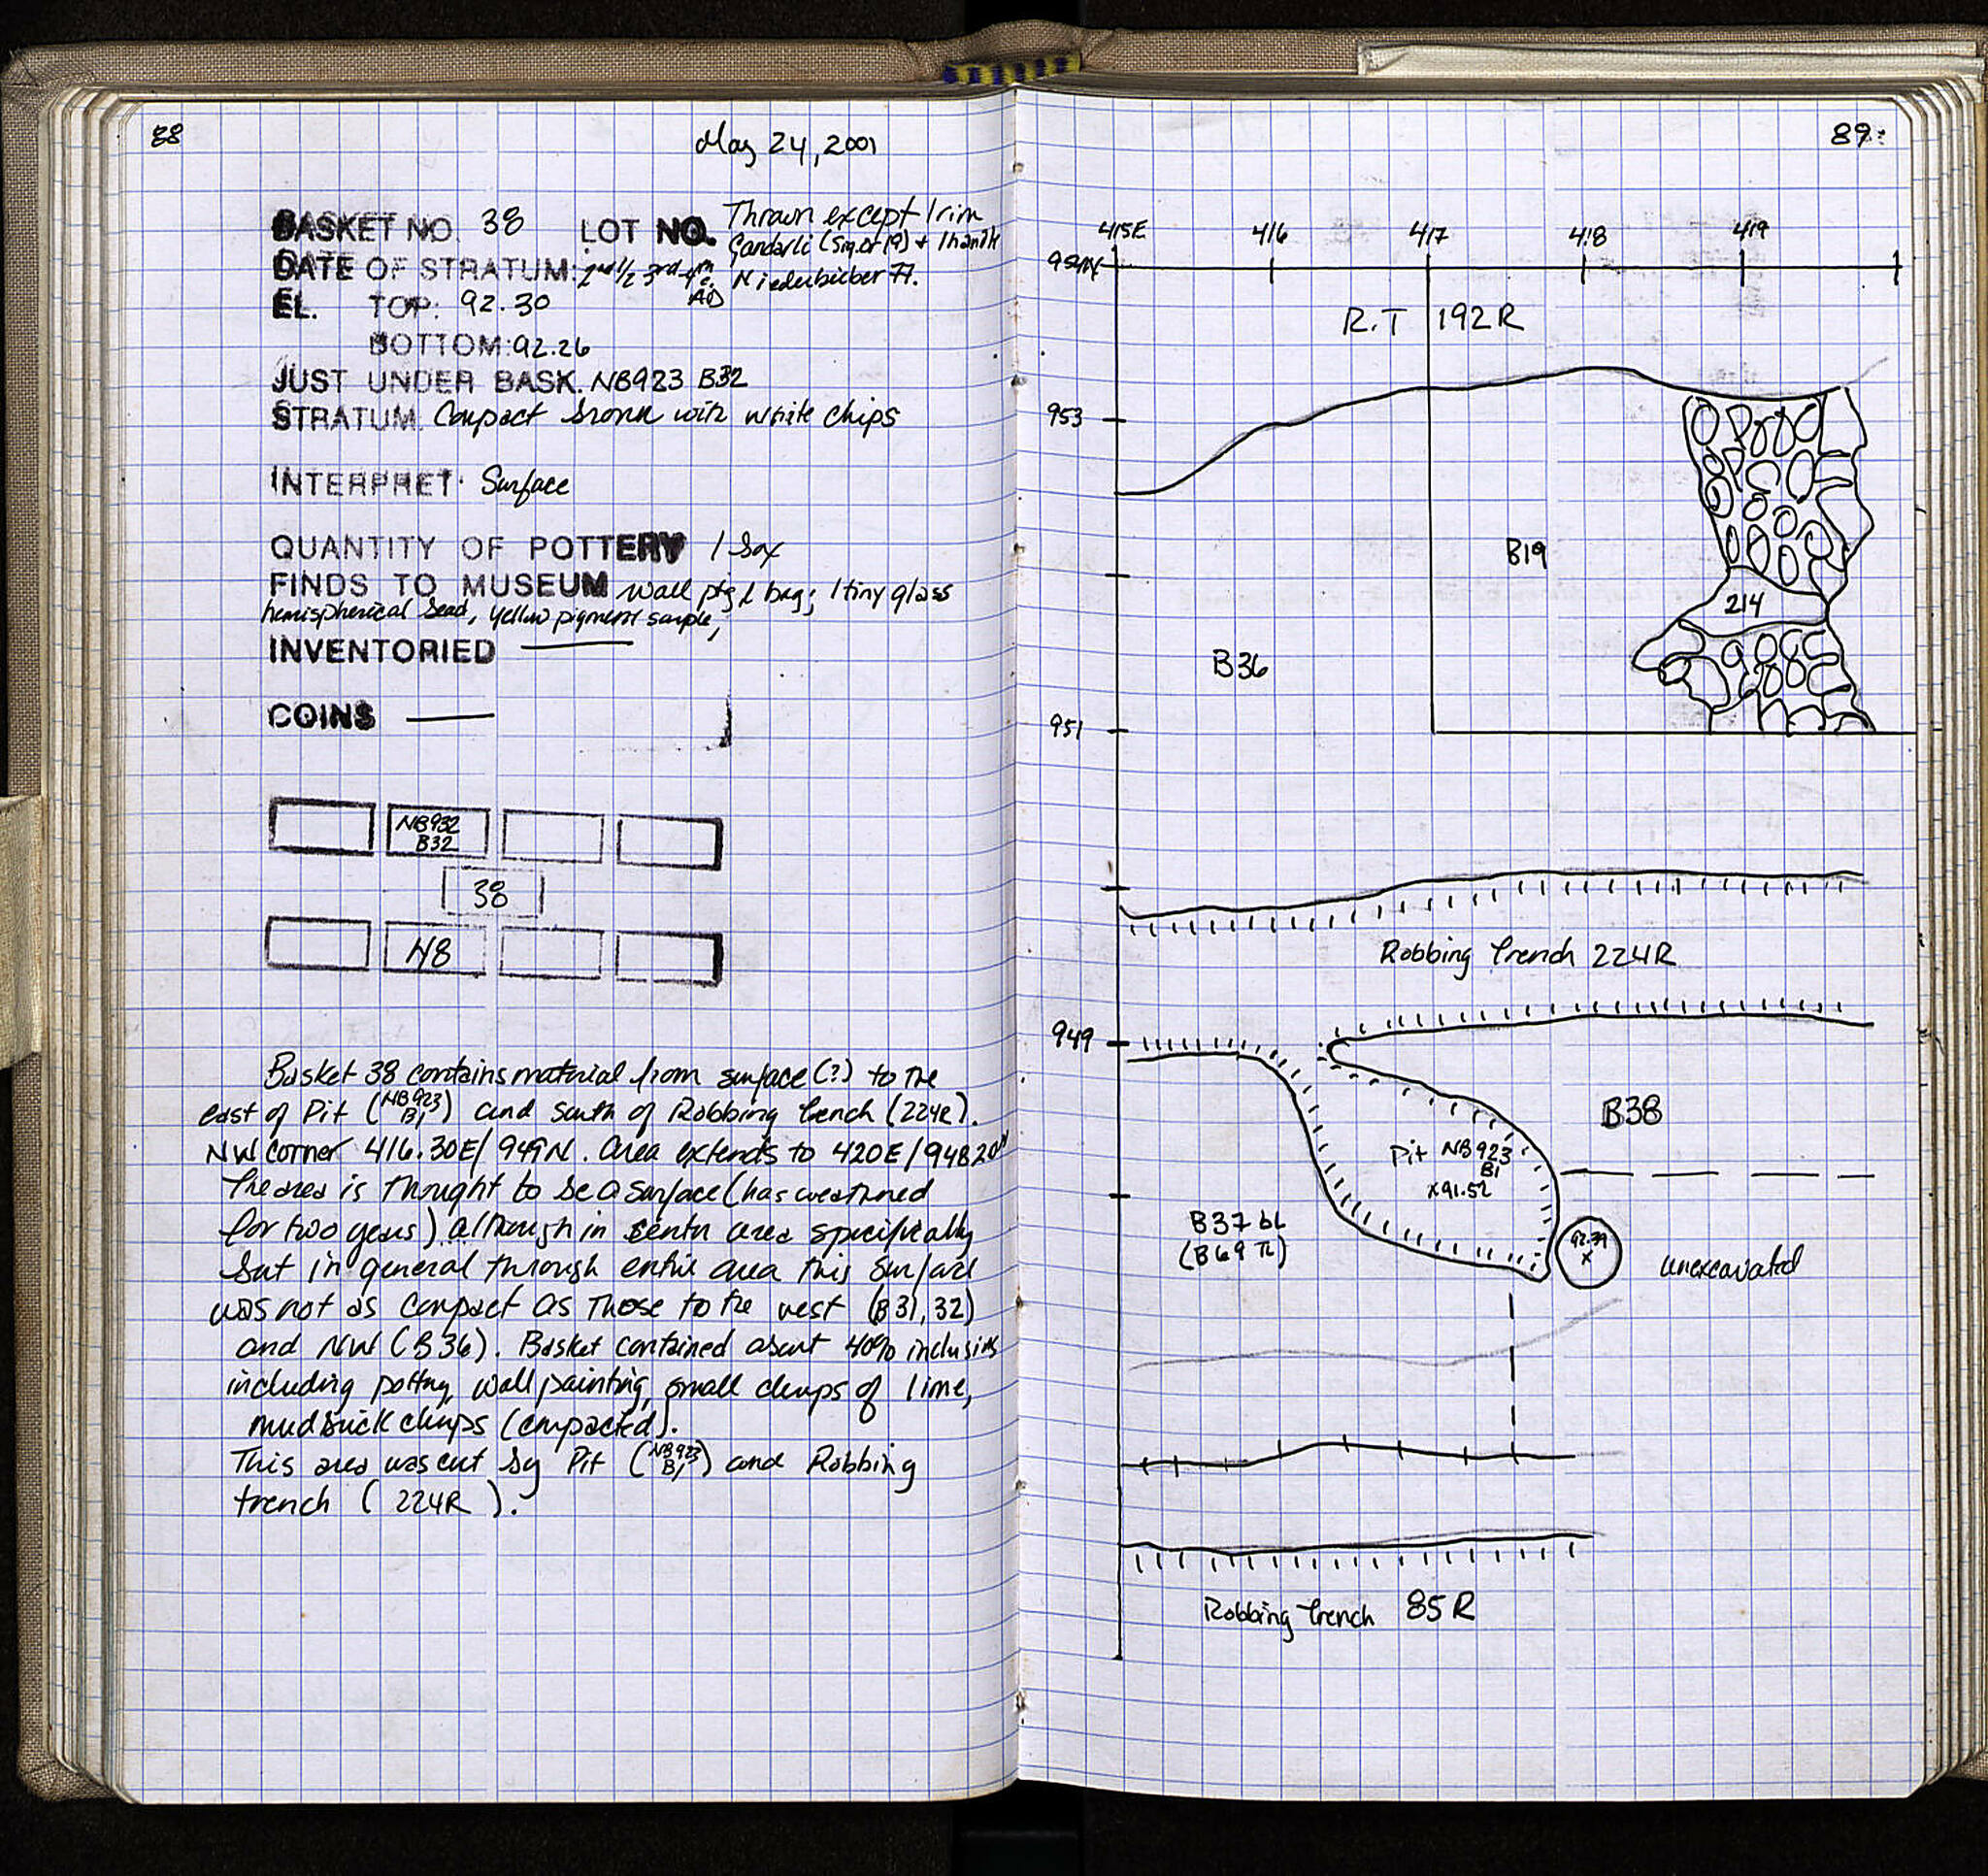 88
May 24, 2001
BASKET NO. 38 LOT NO. Thrown except 1 rim
Candarli (Sig. or 19) + 1 handle
Niederbieber 77.
DATE OF STRATUM: 2nd 1/2 3rd - 4th c. AD
EL. TOP: 92.30
BOTTOM: 92.26
JUST UNDER BASK. NB923 B32
STRATUM. Compact brown with white chips
INTERPRET. Surface
QUANTITY OF POTTERY 1 box
FINDS TO MUSEUM wall ptg 1 bag; 1 tiny glass
hemispherical bead, yellow pigment sample,
INVENTORIED —
COINS —
NB932
B32
38
N8
Basket 38 contains material from surface (?) to the
east of Pit (NB923 B1) and south of Robbing trench (224R).
NW corner 416.30E/949N. Area extends to 420E/948.20N
The area is thought to be a surface (has weathered
for two years) although in center area specifically
but in general through entire area this surface
was not as compact as those to the west (B31, 32)
and NW (B36). Basket contained about 40% inclusions
including pottery, wall painting, small clumps of lime,
mudbrick clumps (compacted).
This area was cut by Pit (NB923 B1) and Robbing
trench (224R).
89
415E 416 417 418 419
954N
R.T 192R
953
B19
214
B36
951
Robbing trench 224R
949
B38
Pit NB923
B1
x91.52
B37 bl
(B69 TL)
92.39
x
unexcavated
Robbing trench 85R